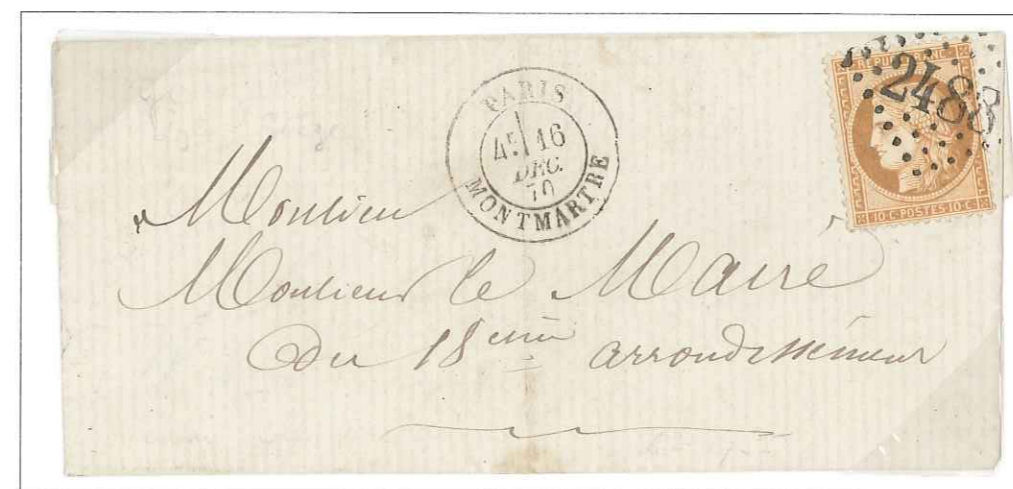 PARIS
4E 16
DEC.
70
MONTMARTRE
REPUB. FRANC.
2488
10 C. POSTES 10 C.
Monsieur
Monsieur le Maire
du 18eme arrondissement